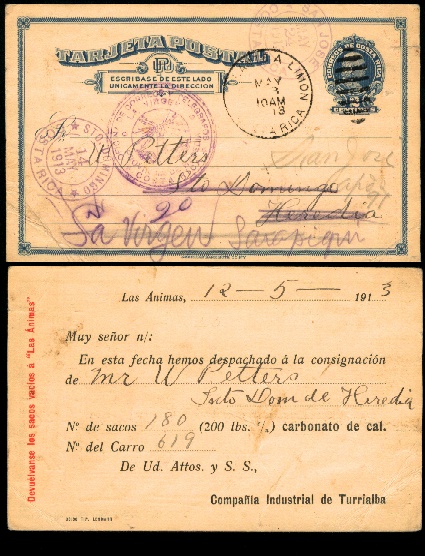 TARJETA POSTAL
ESCRIBASE DE ESTE LADO
UNICAMENTE LA DIRECCION
CORREOS DE COSTA RICA
SAN JOSE
LIMON
MAY
10AM
13
RICA
14
MAY
1913
COSTA RICA
W Petters
Sto Domingo
Heredia
San Jose
20
La Virgen Sarapiqui
Las Animas, 12 - 5 - 1913
Muy señor n/:
En esta fecha hemos despachado á la consignación
de Mr W Petters
Sto Dom de Heredia
Nº de sacos 180 (200 lbs. c/u) carbonato de cal.
Nº del Carro 619
De Ud. Attos. y S. S.,
Compañía Industrial de Turrialba
Devuélvanse los sacos vacíos á "Las Ánimas"